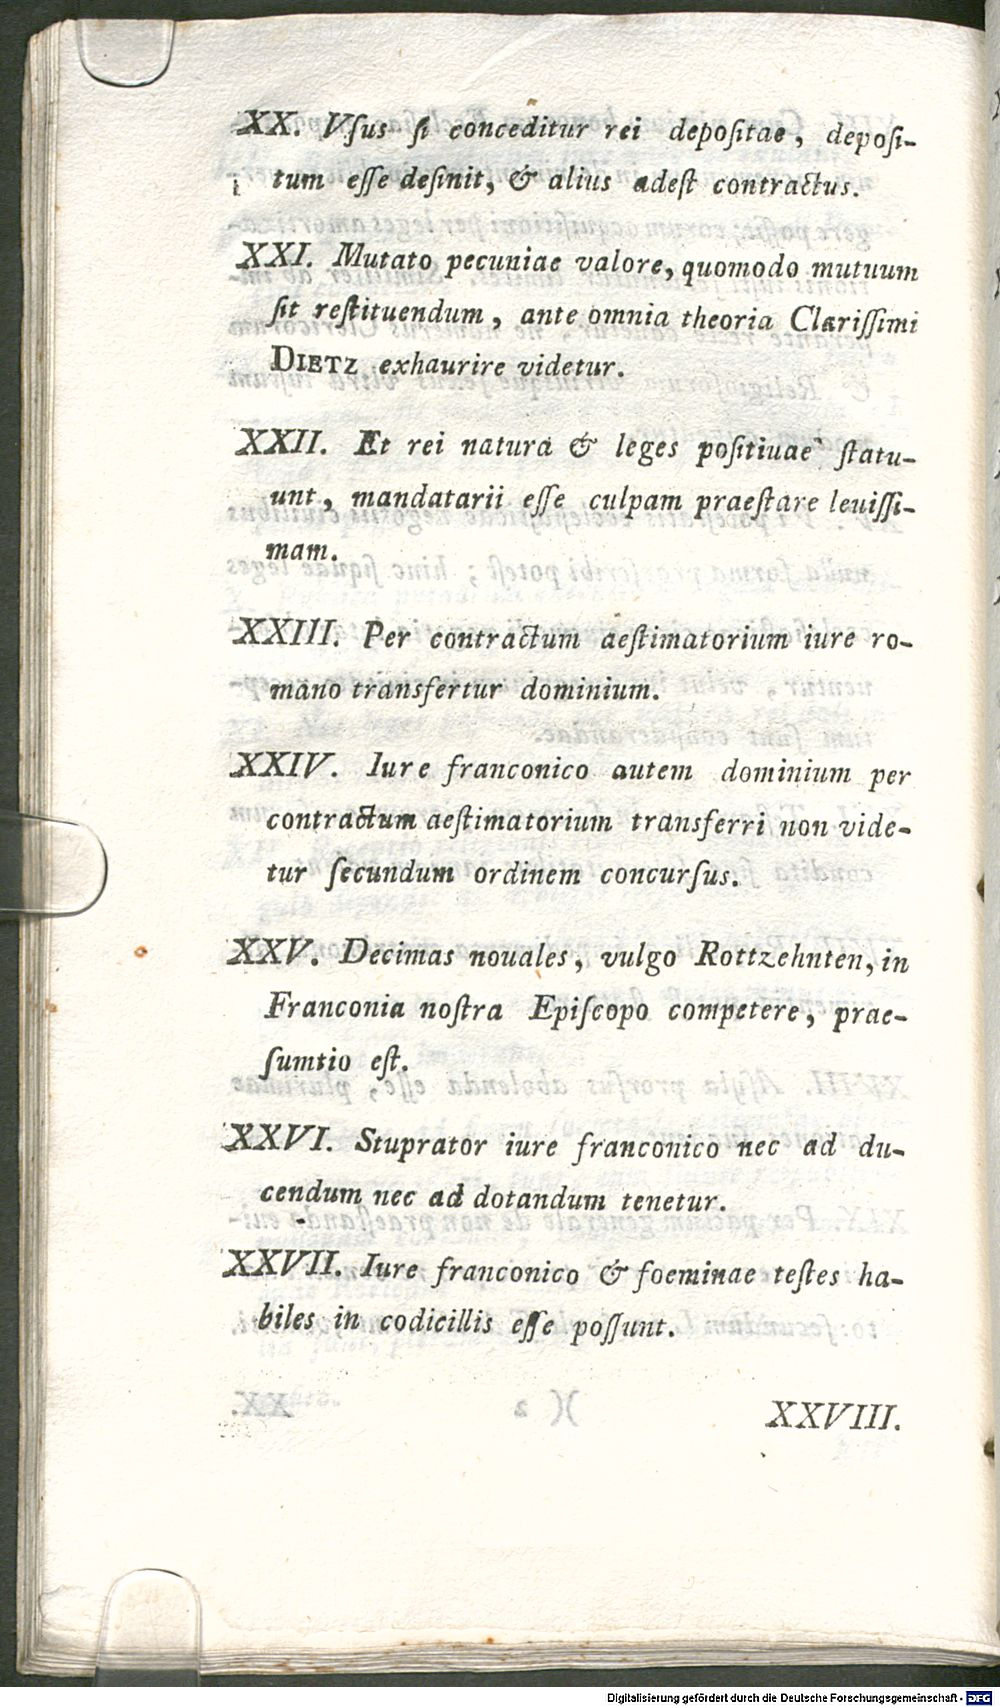 XX. Vſus ſi conceditur rei depoſitae, depoſi-
tum eſſe deſinit, & alius adeſt contractus.
XXI. Mutato pecuniae valore, quomodo mutuum
ſit reſtituendum, ante omnia theoria Clariſſimi
DIETZ exhaurire videtur.
XXII. Et rei natura & leges poſitiuae ſtatu-
unt, mandatarii eſſe culpam praeſtare leuiſſi-
mam.
XXIII. Per contractum aeſtimatorium iure ro-
mano transfertur dominium.
XXIV. Iure franconico autem dominium per
contractum aeſtimatorium transferri non vide-
tur ſecundum ordinem concurſus.
XXV. Decimas nouales, vulgo Rottzehnten, in
Franconia noſtra Epiſcopo competere, prae-
ſumtio eſt.
XXVI. Stuprator iure franconico nec ad du-
cendum nec ad dotandum tenetur.
XXVII. Iure franconico & foeminae teſtes ha-
biles in codicillis eſſe poſſunt.
XXVIII.
Digitalisierung gefördert durch die Deutsche Forschungsgemeinschaft - DFG